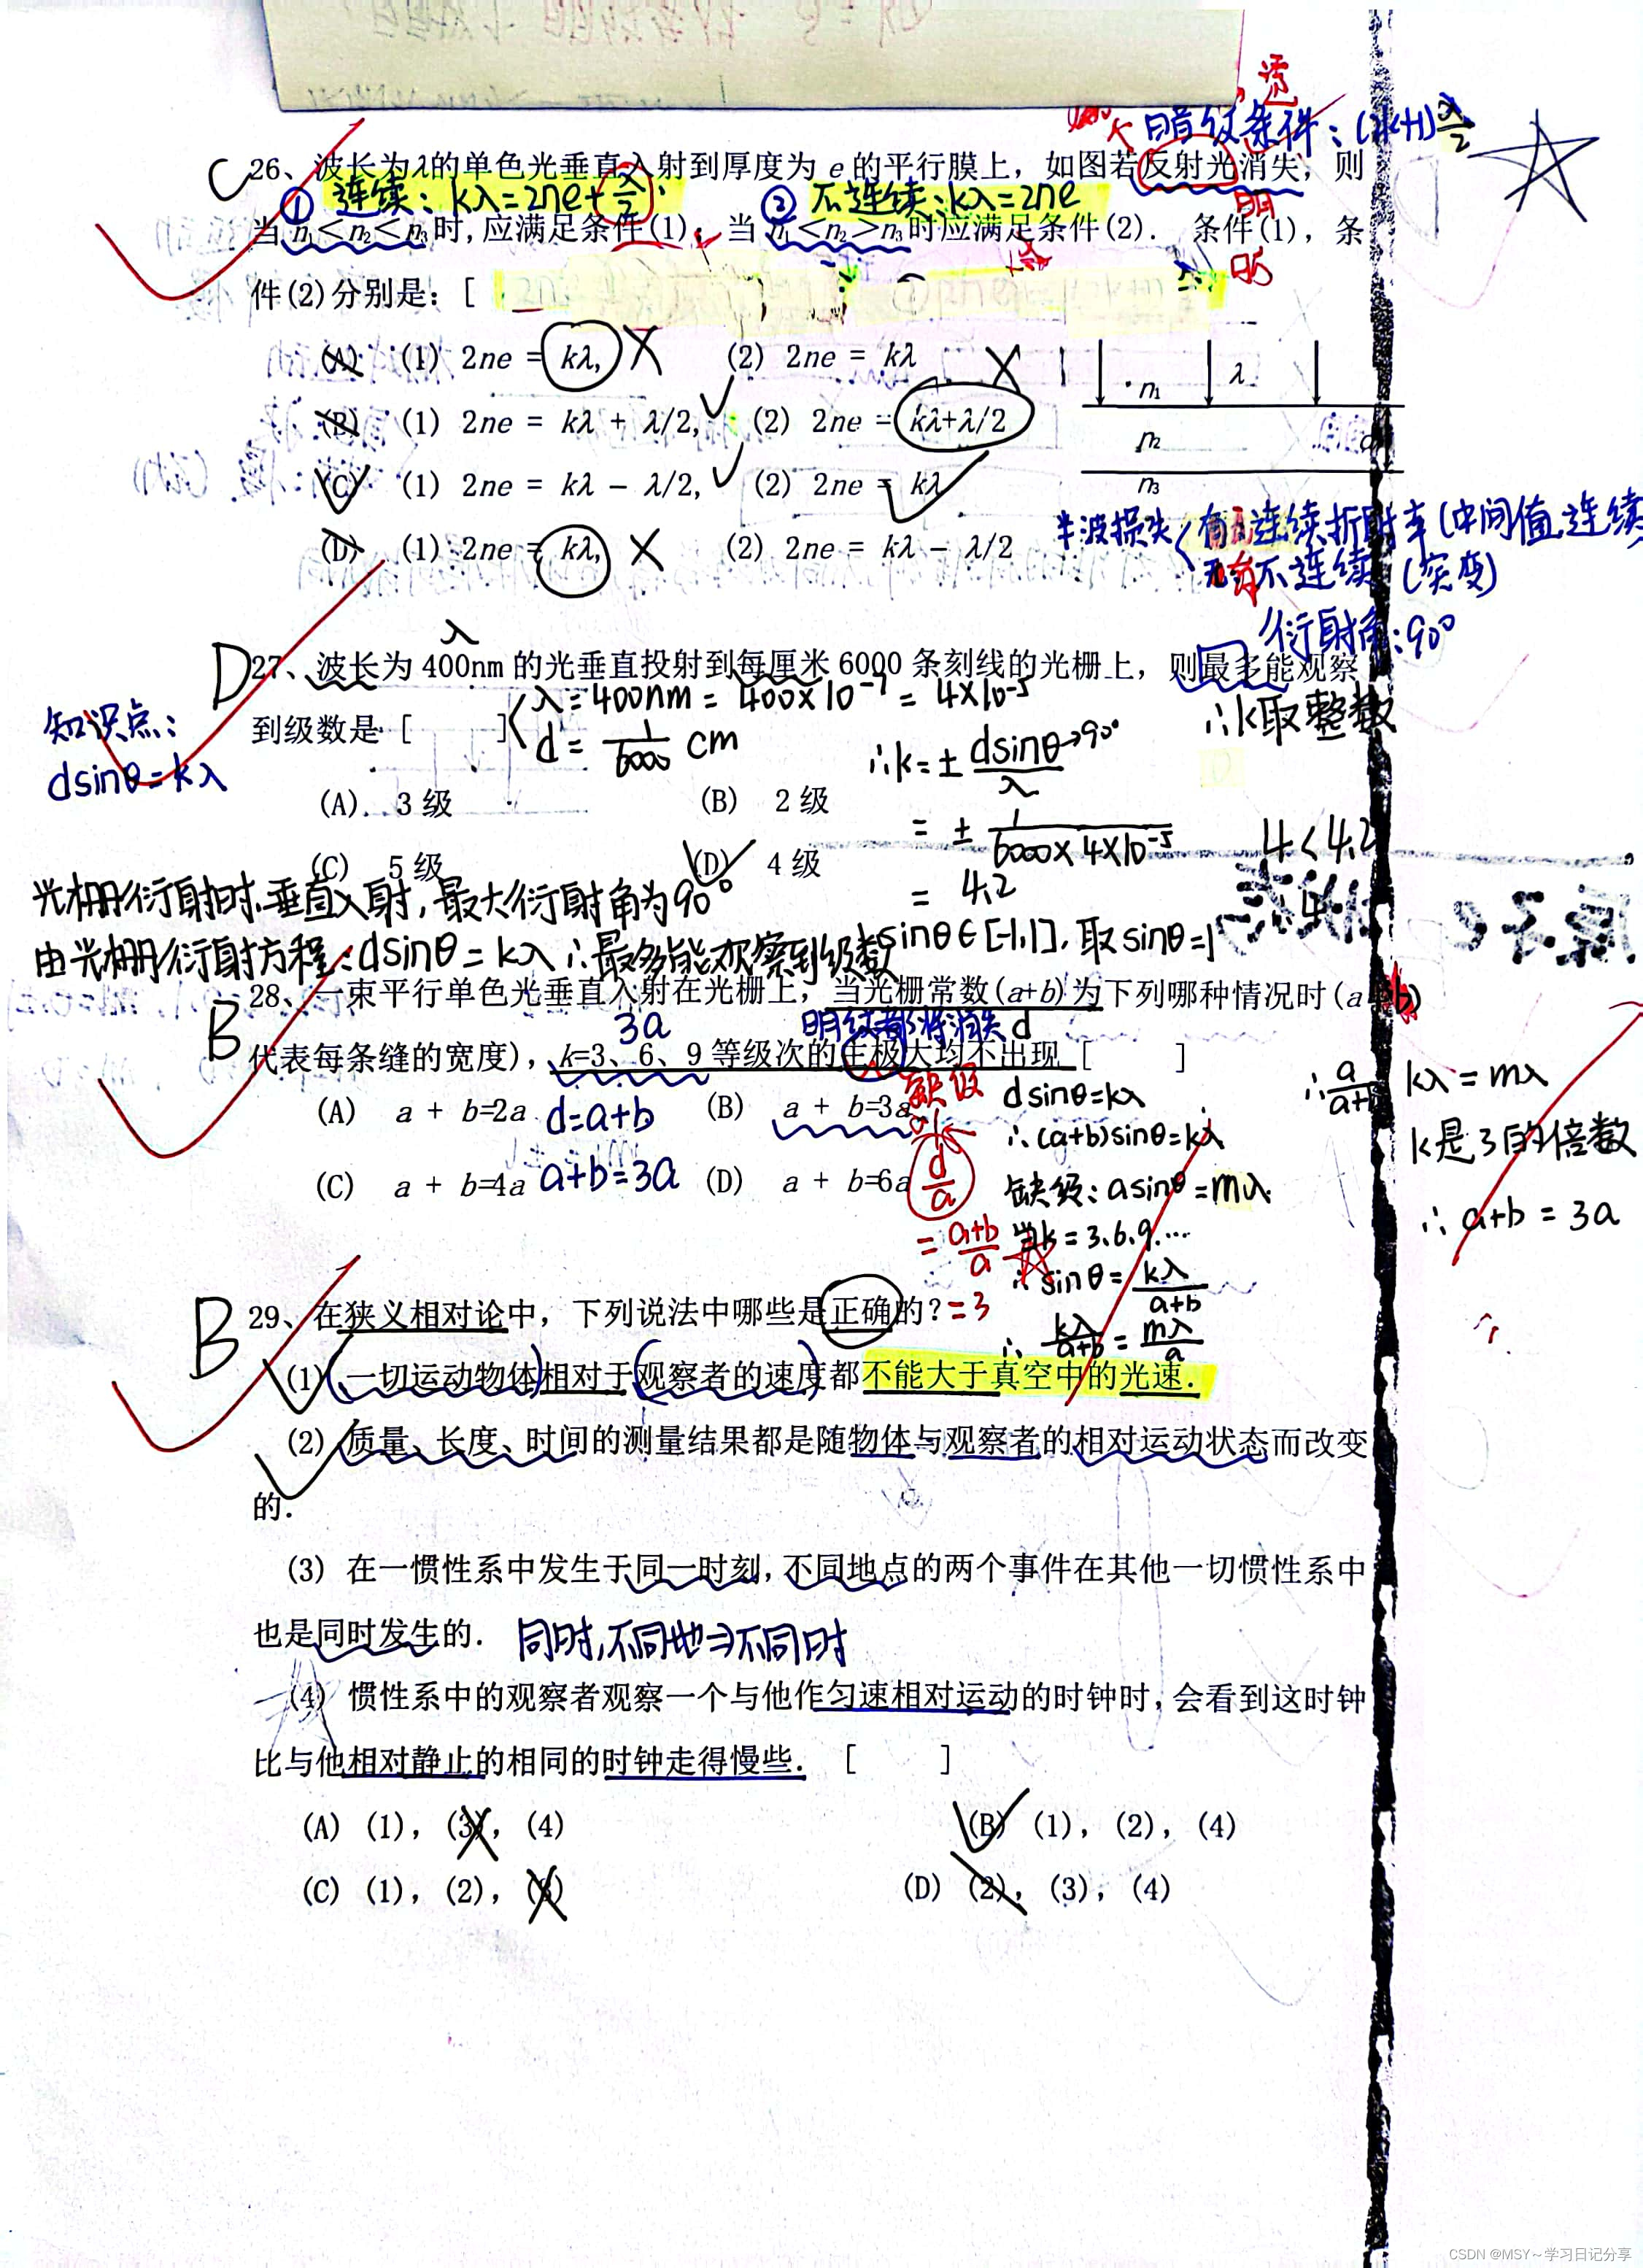 暗纹条件：(2k+1)λ/2
C 26、波长为λ的单色光垂直入射到厚度为 e 的平行膜上，如图若反射光消失，则
① 连续：kλ=2ne+λ/2 ② 不连续：kλ=2ne
当 n₁<n₂<n₃时,应满足条件(1)；当 n₁<n₂>n₃时应满足条件(2). 条件(1)，条
件(2)分别是：[
(A) (1) 2ne = kλ, (2) 2ne = kλ
(B) (1) 2ne = kλ + λ/2, (2) 2ne = kλ+λ/2
(C) (1) 2ne = kλ − λ/2, (2) 2ne = kλ
(D) (1) 2ne = kλ, (2) 2ne = kλ − λ/2
n₁ λ
n₂
n₃
半波损失 连续折射率(中间值,连续)
不连续 (突变)
衍射角：90°
λ
D 27、波长为 400nm 的光垂直投射到每厘米 6000 条刻线的光栅上，则最多能观察
λ=400nm = 400×10⁻⁷ = 4×10⁻⁵
∴k取整数
到级数是 [ ]
d = 1/6000 cm
知识点：
dsinθ=kλ
∴k=± dsinθ→90°/λ
(A). 3 级 (B) 2 级
= ± 1/6000×4×10⁻⁵
4<4.2
(C) 5 级 (D) 4 级
= 4.2
∴4
光栅衍射时,垂直入射,最大衍射角为90°
sinθ∈[-1,1],取sinθ=1
由光栅衍射方程：dsinθ=kλ ∴最多能观察到级数
28、一束平行单色光垂直入射在光栅上，当光栅常数(a+b)为下列哪种情况时(a
3a 明纹都将消失 d
B 代表每条缝的宽度)，k=3、6、9 等级次的主极大均不出现 [ ]
(A) a + b=2a d=a+b (B) a + b=3a
(C) a + b=4a a+b=3a (D) a + b=6a
d/a
= a+b/a
=3
dsinθ=kλ
∴(a+b)sinθ=kλ
缺级：asinθ=mλ
当k=3.6.9.…
∴sinθ= kλ/a+b
∴ kλ/a+b = mλ/a
kλ=mλ
k是3的倍数
∴ a+b = 3a
B 29、在狭义相对论中，下列说法中哪些是正确的？
(1)、一切运动物体相对于观察者的速度都不能大于真空中的光速.
(2) 质量、长度、时间的测量结果都是随物体与观察者的相对运动状态而改变
的.
(3) 在一惯性系中发生于同一时刻,不同地点的两个事件在其他一切惯性系中
也是同时发生的. 同时,不同地⇒不同时
(4) 惯性系中的观察者观察一个与他作匀速相对运动的时钟时,会看到这时钟
比与他相对静止的相同的时钟走得慢些. [ ]
(A) (1), (3), (4) (B) (1), (2), (4)
(C) (1), (2), (3) (D) (2), (3), (4)
CSDN @MSY～学习日记分享